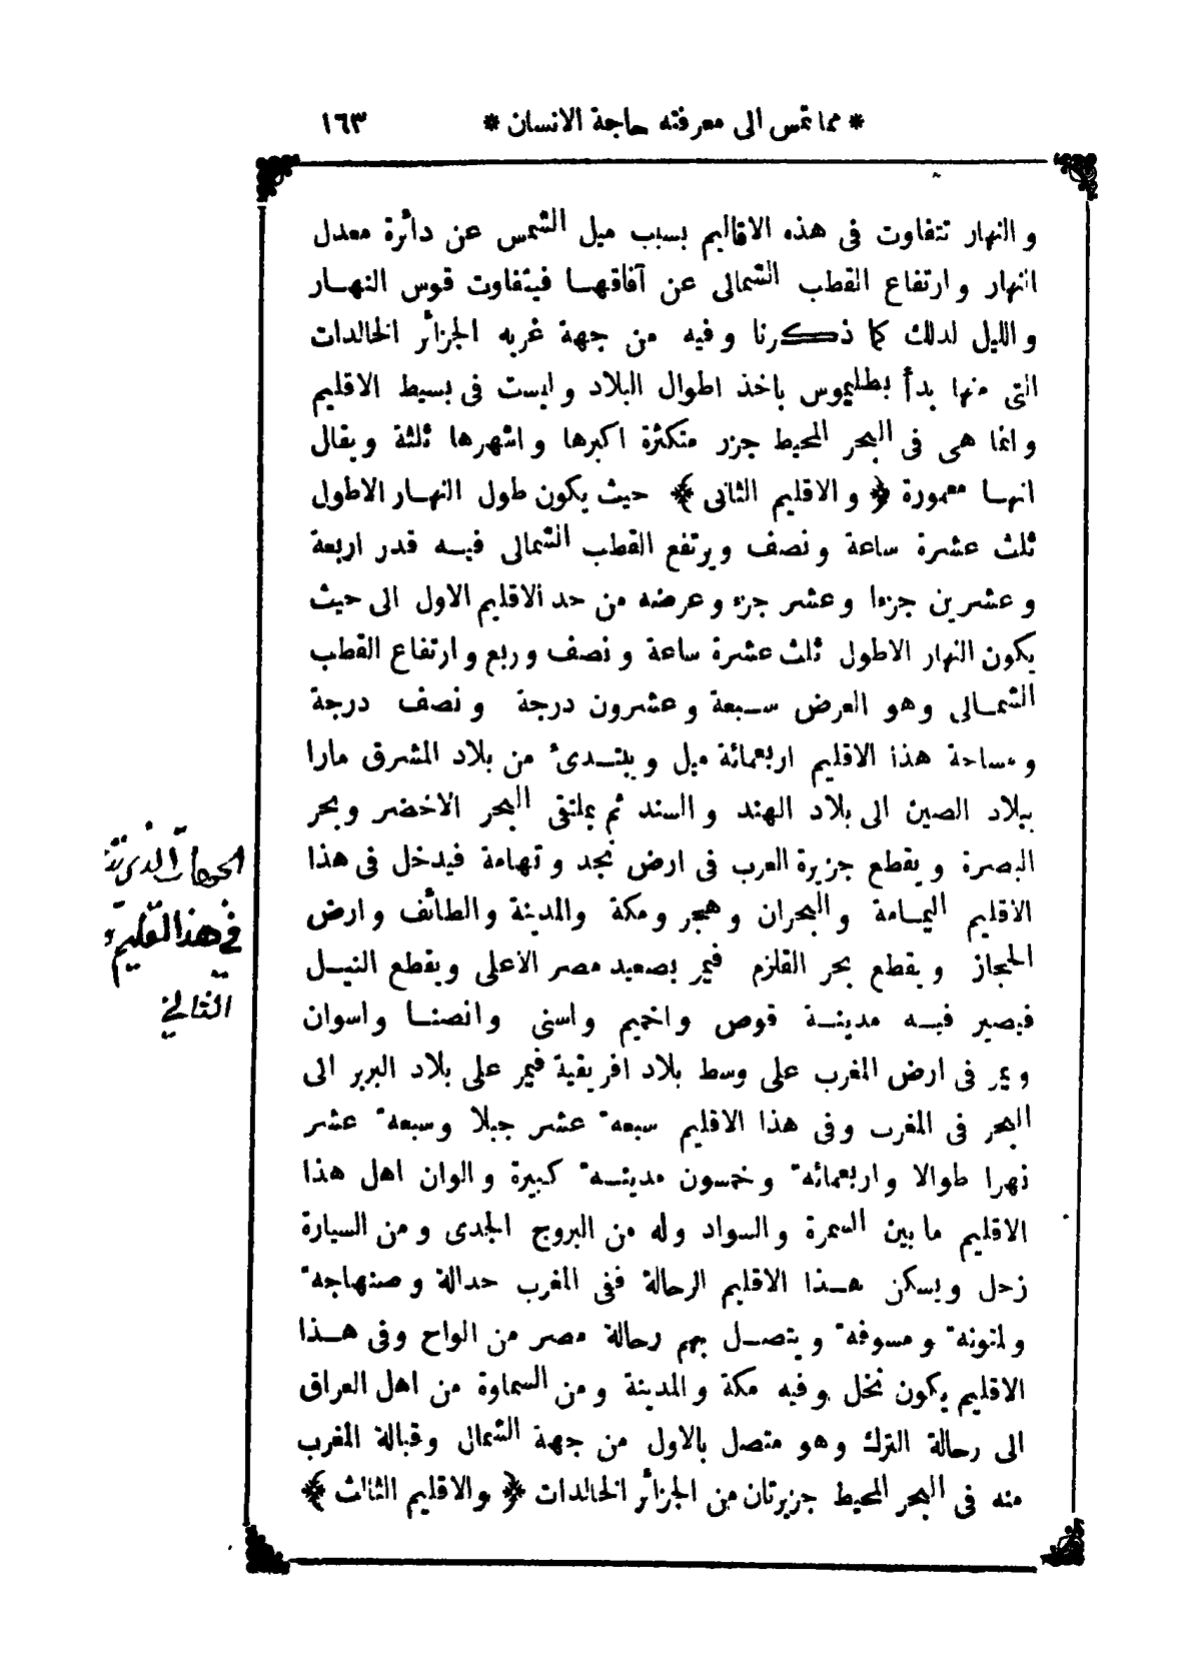 * مما تمس الى معرفته حاجة الانسان * ١٦٣
والنهار تتفاوت فى هذه الاقاليم بسبب ميل الشمس عن دائرة معدل
النهار وارتفاع القطب الشمالى عن آفاقهـا فيتفاوت قوس النهـار
والليل لذلك كما ذكرنا وفيه من جهة غربه الجزائر الخالدات
التى منها بدأ بطليموس باخذ اطوال البلاد وليست فى بسيط الاقليم
وانما هى فى البحر المحيط جزر متكثرة اكبرها واشهرها ثلثة ويقال
انهـا معمورة ﴿ والاقليم الثانى ﴾ حيث يكون طول النهـار الاطول
ثلث عشرة ساعة ونصف ويرتفع القطب الشمالى فيـه قدر اربعة
وعشرين جزءا وعشر جزء وعرضه من حد الاقليم الاول الى حيث
يكون النهار الاطول ثلث عشرة ساعة ونصف وربع وارتفاع القطب
الشمـالى وهو العرض سـبعة وعشرون درجة ونصف درجة
ومساحة هذا الاقليم اربعمائة ميل ويبتـدئ من بلاد المشرق مارا
ببلاد الصين الى بلاد الهند والسند ثم بملتقى البحر الاخضر وبحر
البصرة ويقطع جزيرة العرب فى ارض نجد وتهامة فيدخل فى هذا
الاقليم اليمـامة والبحران وهجر ومكة والمدينة والطائف وارض
الحجاز ويقطع بحر القلزم فيمر بصعيد مصر الاعلى ويقطع النيـل
فيصير فيـه مدينـة قوص واخميم واسنى وانصنـا واسوان
ويمر فى ارض المغرب على وسط بلاد افريقية فيمر على بلاد البربر الى
البحر فى المغرب وفى هذا الاقليم سبعة عشر جبلا وسبعة عشر
نهرا طوالا واربعمائة وخمسون مدينـة كبيرة والوان اهل هذا
الاقليم ما بين السمرة والسواد وله من البروج الجدى ومن السيارة
زحل ويسكن هـذا الاقليم الرحالة ففى المغرب حدالة وصنهاجة
ولمتونة ومسوفة ويتصـل بهم رحالة مصر من الواح وفى هـذا
الاقليم يكون نخل وفيه مكة والمدينة ومن السماوة من اهل العراق
الى رحالة الترك وهو متصل بالاول من جهة الشمال وقبالة المغرب
منه فى البحر المحيط جزيرتان من الجزائر الخالدات ﴿ والاقليم الثالث ﴾
الذى
فى هذا القليم
الثانى